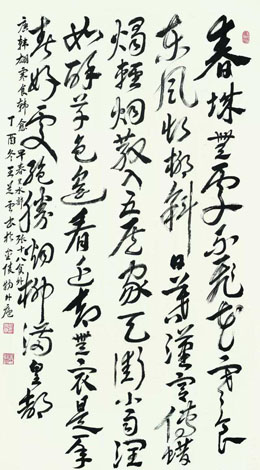 春城無處不飛花寒食
東風御柳斜日暮漢宮傳蠟
燭輕烟散入五侯家天街小雨潤
如酥草色遙看近却無最是一年
春好處絕勝烟柳滿皇都
唐韓翃寒食韓愈早春呈水部張十八員外
丁酉冬王芝雲書於金陵物外庵